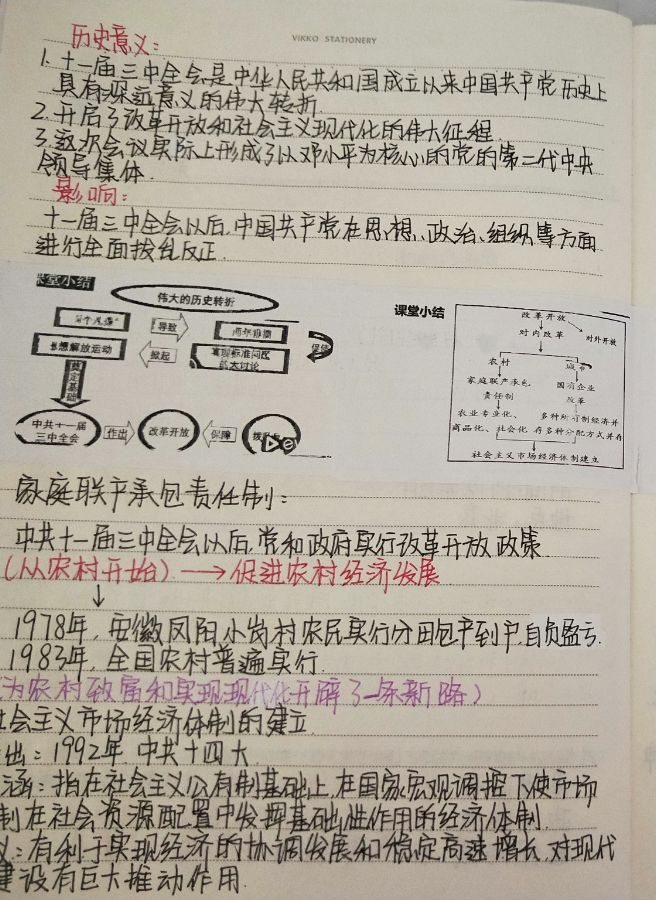 VIKKO STATIONERY
历史意义：
1.十一届三中全会是中华人民共和国成立以来中国共产党历史上
具有深远意义的伟大转折.
2.开启了改革开放和社会主义现代化的伟大征程.
3.这次会议实际上形成了以邓小平为核心的党的第二代中央
领导集体.
影响：
十一届三中全会以后，中国共产党在思想、政治、组织等方面
进行全面拨乱反正.
堂小结
伟大的历史转折
导致
两年徘徊
思想解放运动
掀起
真理标准问题
的大讨论
促使
奠定基础
中共十一届
三中全会
作出
改革开放
保障
课堂小结
改革开放
对内改革
对外开放
农村
城市
家庭联产承包
责任制
国有企业
改革
农业专业化、
商品化、社会化
多种所有制经济并
存多种分配方式并存
社会主义市场经济体制建立
家庭联产承包责任制：
中共十一届三中全会以后，党和政府实行改革开放政策
(从农村开始) → 促进农村经济发展
↓
1978年，安徽凤阳小岗村农民实行分田包产到户，自负盈亏.
1983年，全国农村普遍实行.
为农村致富和实现现代化开辟了一条新路)
社会主义市场经济体制的建立
出：1992年 中共十四大
涵：指在社会主义公有制基础上，在国家宏观调控下使市场
制在社会资源配置中发挥基础性作用的经济体制.
义：有利于实现经济的协调发展和稳定高速增长，对现代
建设有巨大推动作用.